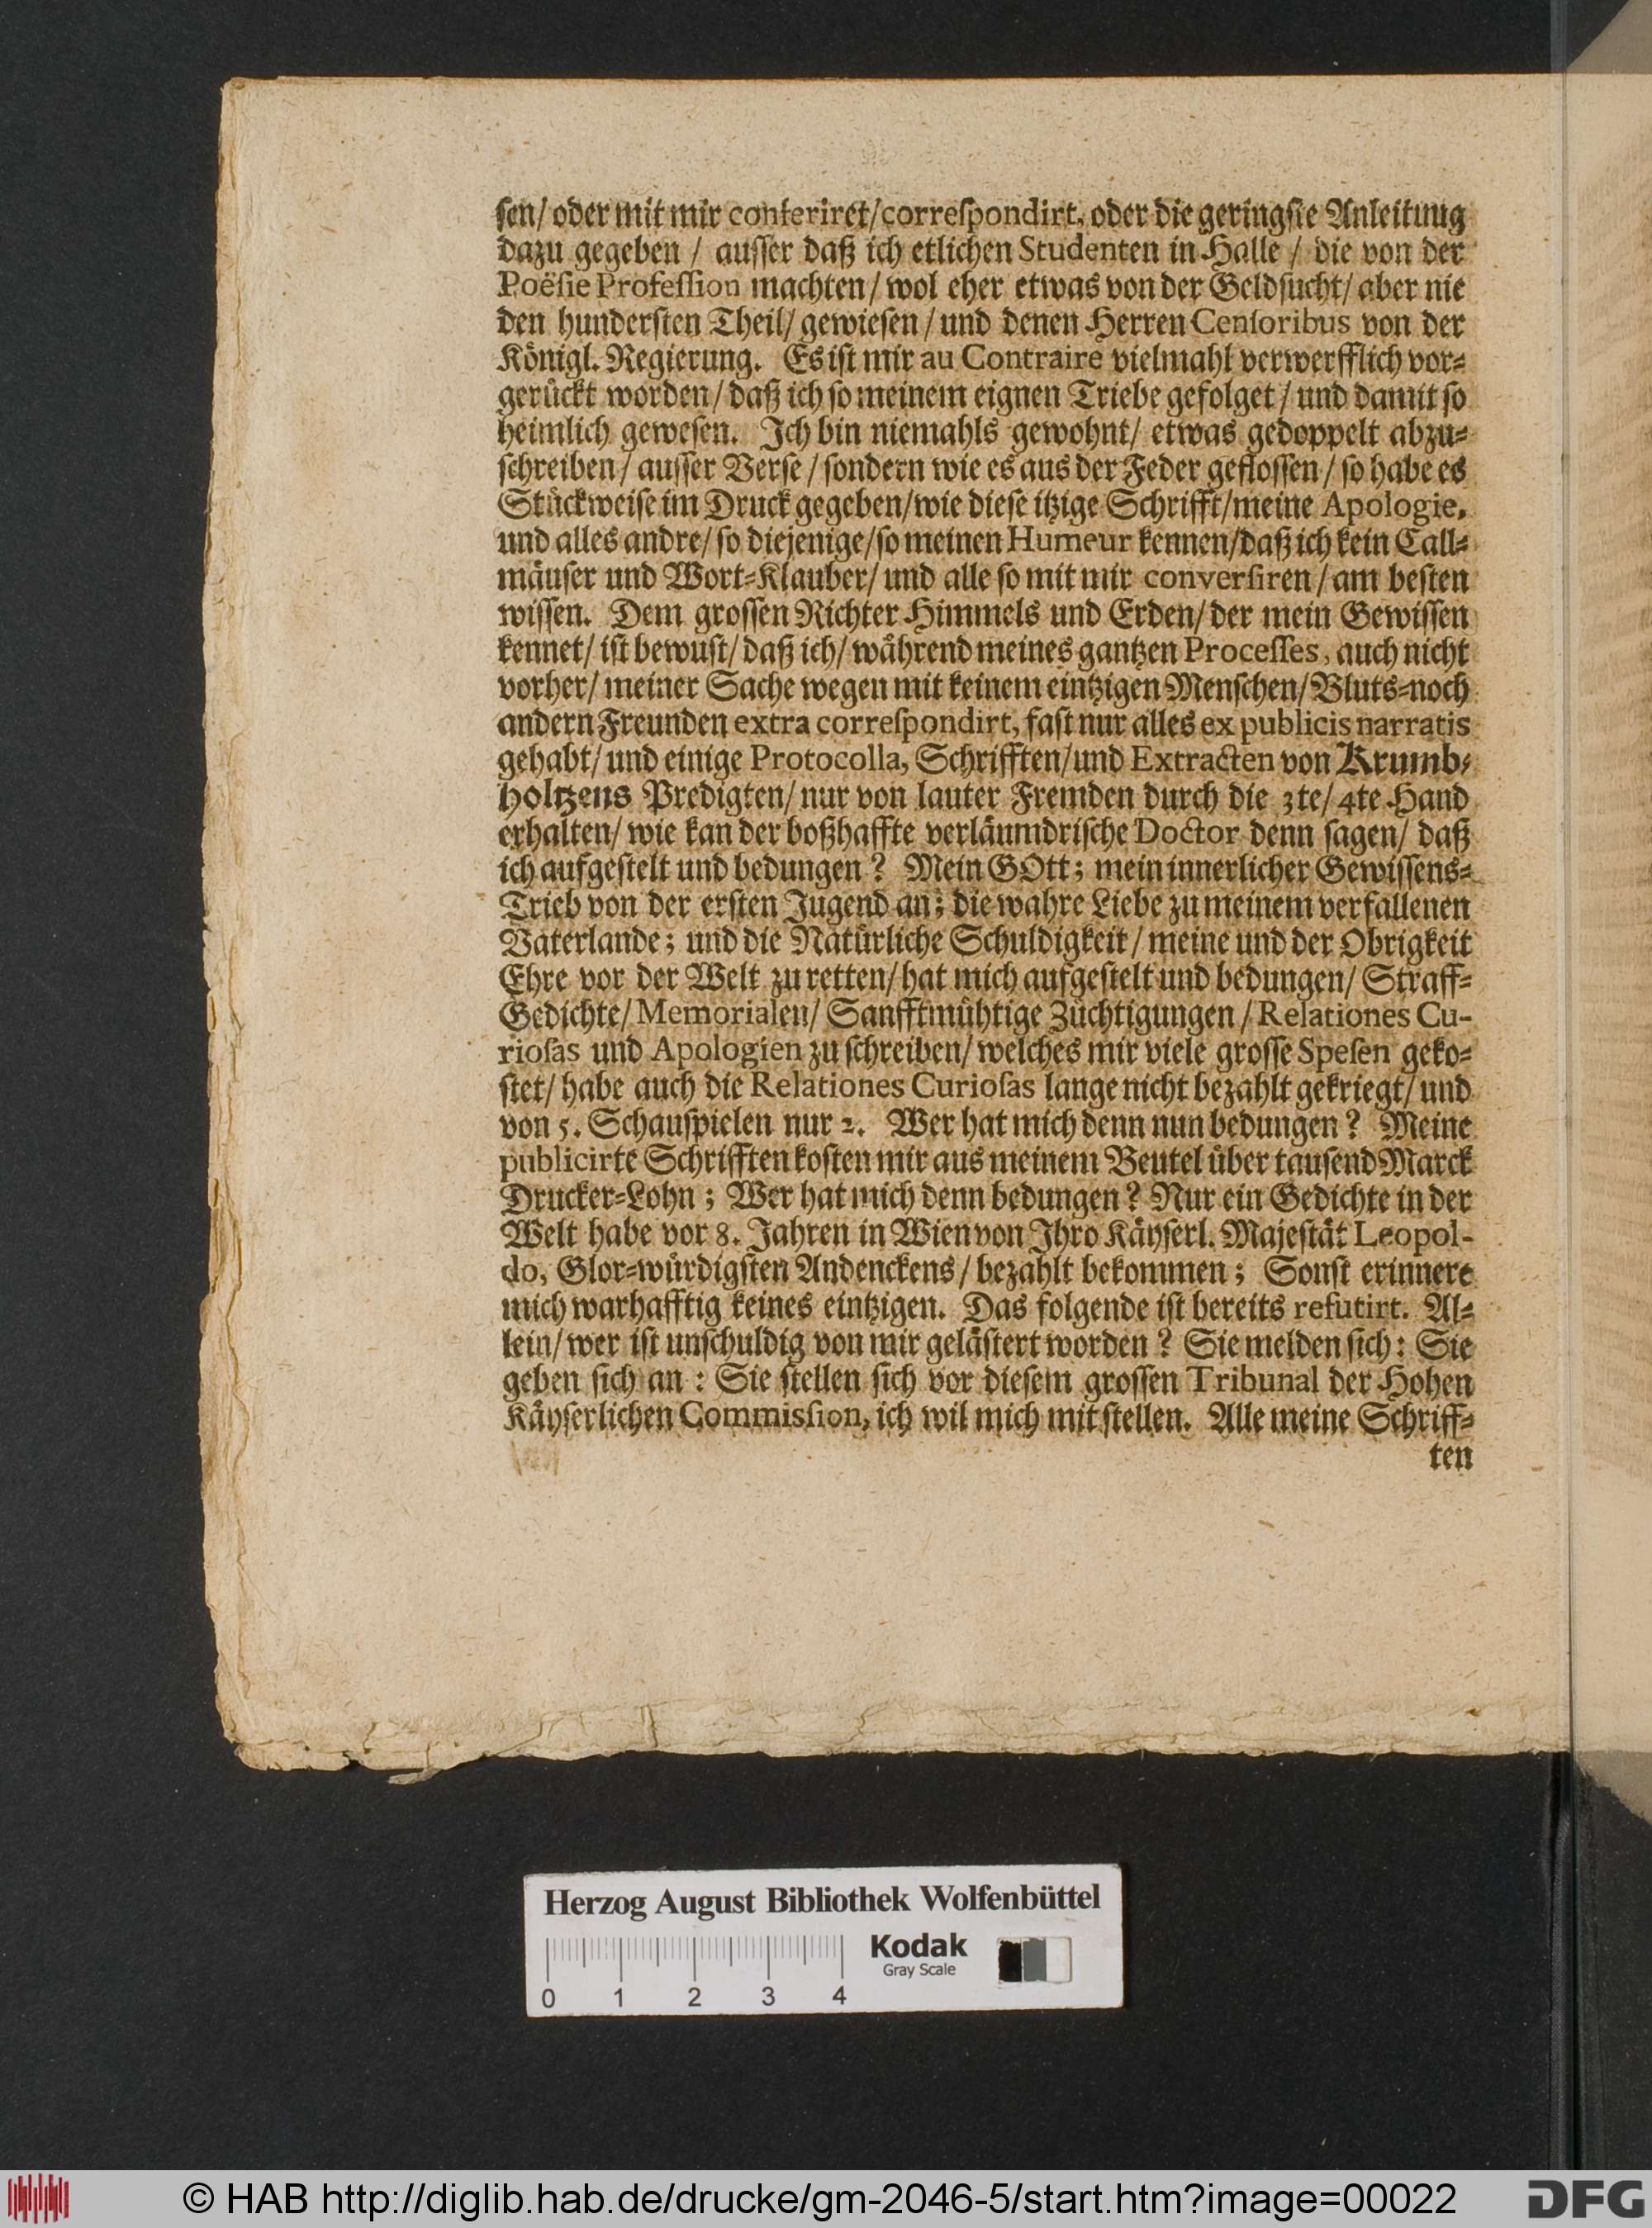 sen/ oder mit mir conferiret/correſpondirt, oder die geringſte Anleitung
dazu gegeben / auſſer daß ich etlichen Studenten in Halle / die von der
Poëſie Profeſſion machten/ wol eher etwas von der Geldſucht/ aber nie
den hunderſten Theil/ gewieſen / und denen Herren Cenſoribus von der
Königl. Regierung. Es iſt mir au Contraire vielmahl verwerfflich vor-
gerückt worden/ daß ich ſo meinem eignen Triebe gefolget / und damit ſo
heimlich geweſen. Ich bin niemahls gewohnt/ etwas gedoppelt abzu-
ſchreiben/ auſſer Verſe / ſondern wie es aus der Feder gefloſſen / ſo habe es
Stückweiſe im Druck gegeben/wie dieſe itzige Schrifft/meine Apologie,
und alles andre/ ſo diejenige/ſo meinen Humeur kennen/daß ich kein Call-
mäuſer und Wort-Klauber/ und alle ſo mit mir converſiren / am beſten
wiſſen. Dem groſſen Richter Himmels und Erden/ der mein Gewiſſen
kennet/ iſt bewuſt/ daß ich/ während meines gantzen Proceſſes, auch nicht
vorher/ meiner Sache wegen mit keinem eintzigen Menſchen/ Bluts-noch
andern Freunden extra correſpondirt, faſt nur alles ex publicis narratis
gehabt/ und einige Protocolla, Schrifften/und Extracten von Krumb-
holtzens Predigten/ nur von lauter Fremden durch die 3te/ 4te Hand
erhalten/ wie kan der boßhaffte verläumdriſche Doctor denn ſagen/ daß
ich aufgeſtelt und bedungen? Mein GOtt; mein innerlicher Gewiſſens-
Trieb von der erſten Jugend an; die wahre Liebe zu meinem verfallenen
Vaterlande; und die Natürliche Schuldigkeit / meine und der Obrigkeit
Ehre vor der Welt zu retten/ hat mich aufgeſtelt und bedungen/ Straff-
Gedichte/ Memorialen/ Sanfftmühtige Züchtigungen / Relationes Cu-
rioſas und Apologien zu ſchreiben/ welches mir viele groſſe Speſen geko-
ſtet/ habe auch die Relationes Curioſas lange nicht bezahlt gekriegt/ und
von 5. Schauſpielen nur 2. Wer hat mich denn nun bedungen? Meine
publicirte Schrifften koſten mir aus meinem Beutel über tauſend Marck
Drucker-Lohn; Wer hat mich denn bedungen? Nur ein Gedichte in der
Welt habe vor 8. Jahren in Wien von Ihro Käyſerl. Majeſtät Leopol-
do, Glor-würdigſten Andenckens / bezahlt bekommen; Sonſt erinnere
mich warhafftig keines eintzigen. Das folgende iſt bereits refutirt. Al-
lein/ wer iſt unſchuldig von mir geläſtert worden? Sie melden ſich: Sie
geben ſich an: Sie ſtellen ſich vor dieſem groſſen Tribunal der Hohen
Käyſerlichen Commisſion, ich wil mich mit ſtellen. Alle meine Schriff-
ten
Herzog August Bibliothek Wolfenbüttel
Kodak
Gray Scale
0 1 2 3 4
© HAB http://diglib.hab.de/drucke/gm-2046-5/start.htm?image=00022
DFG